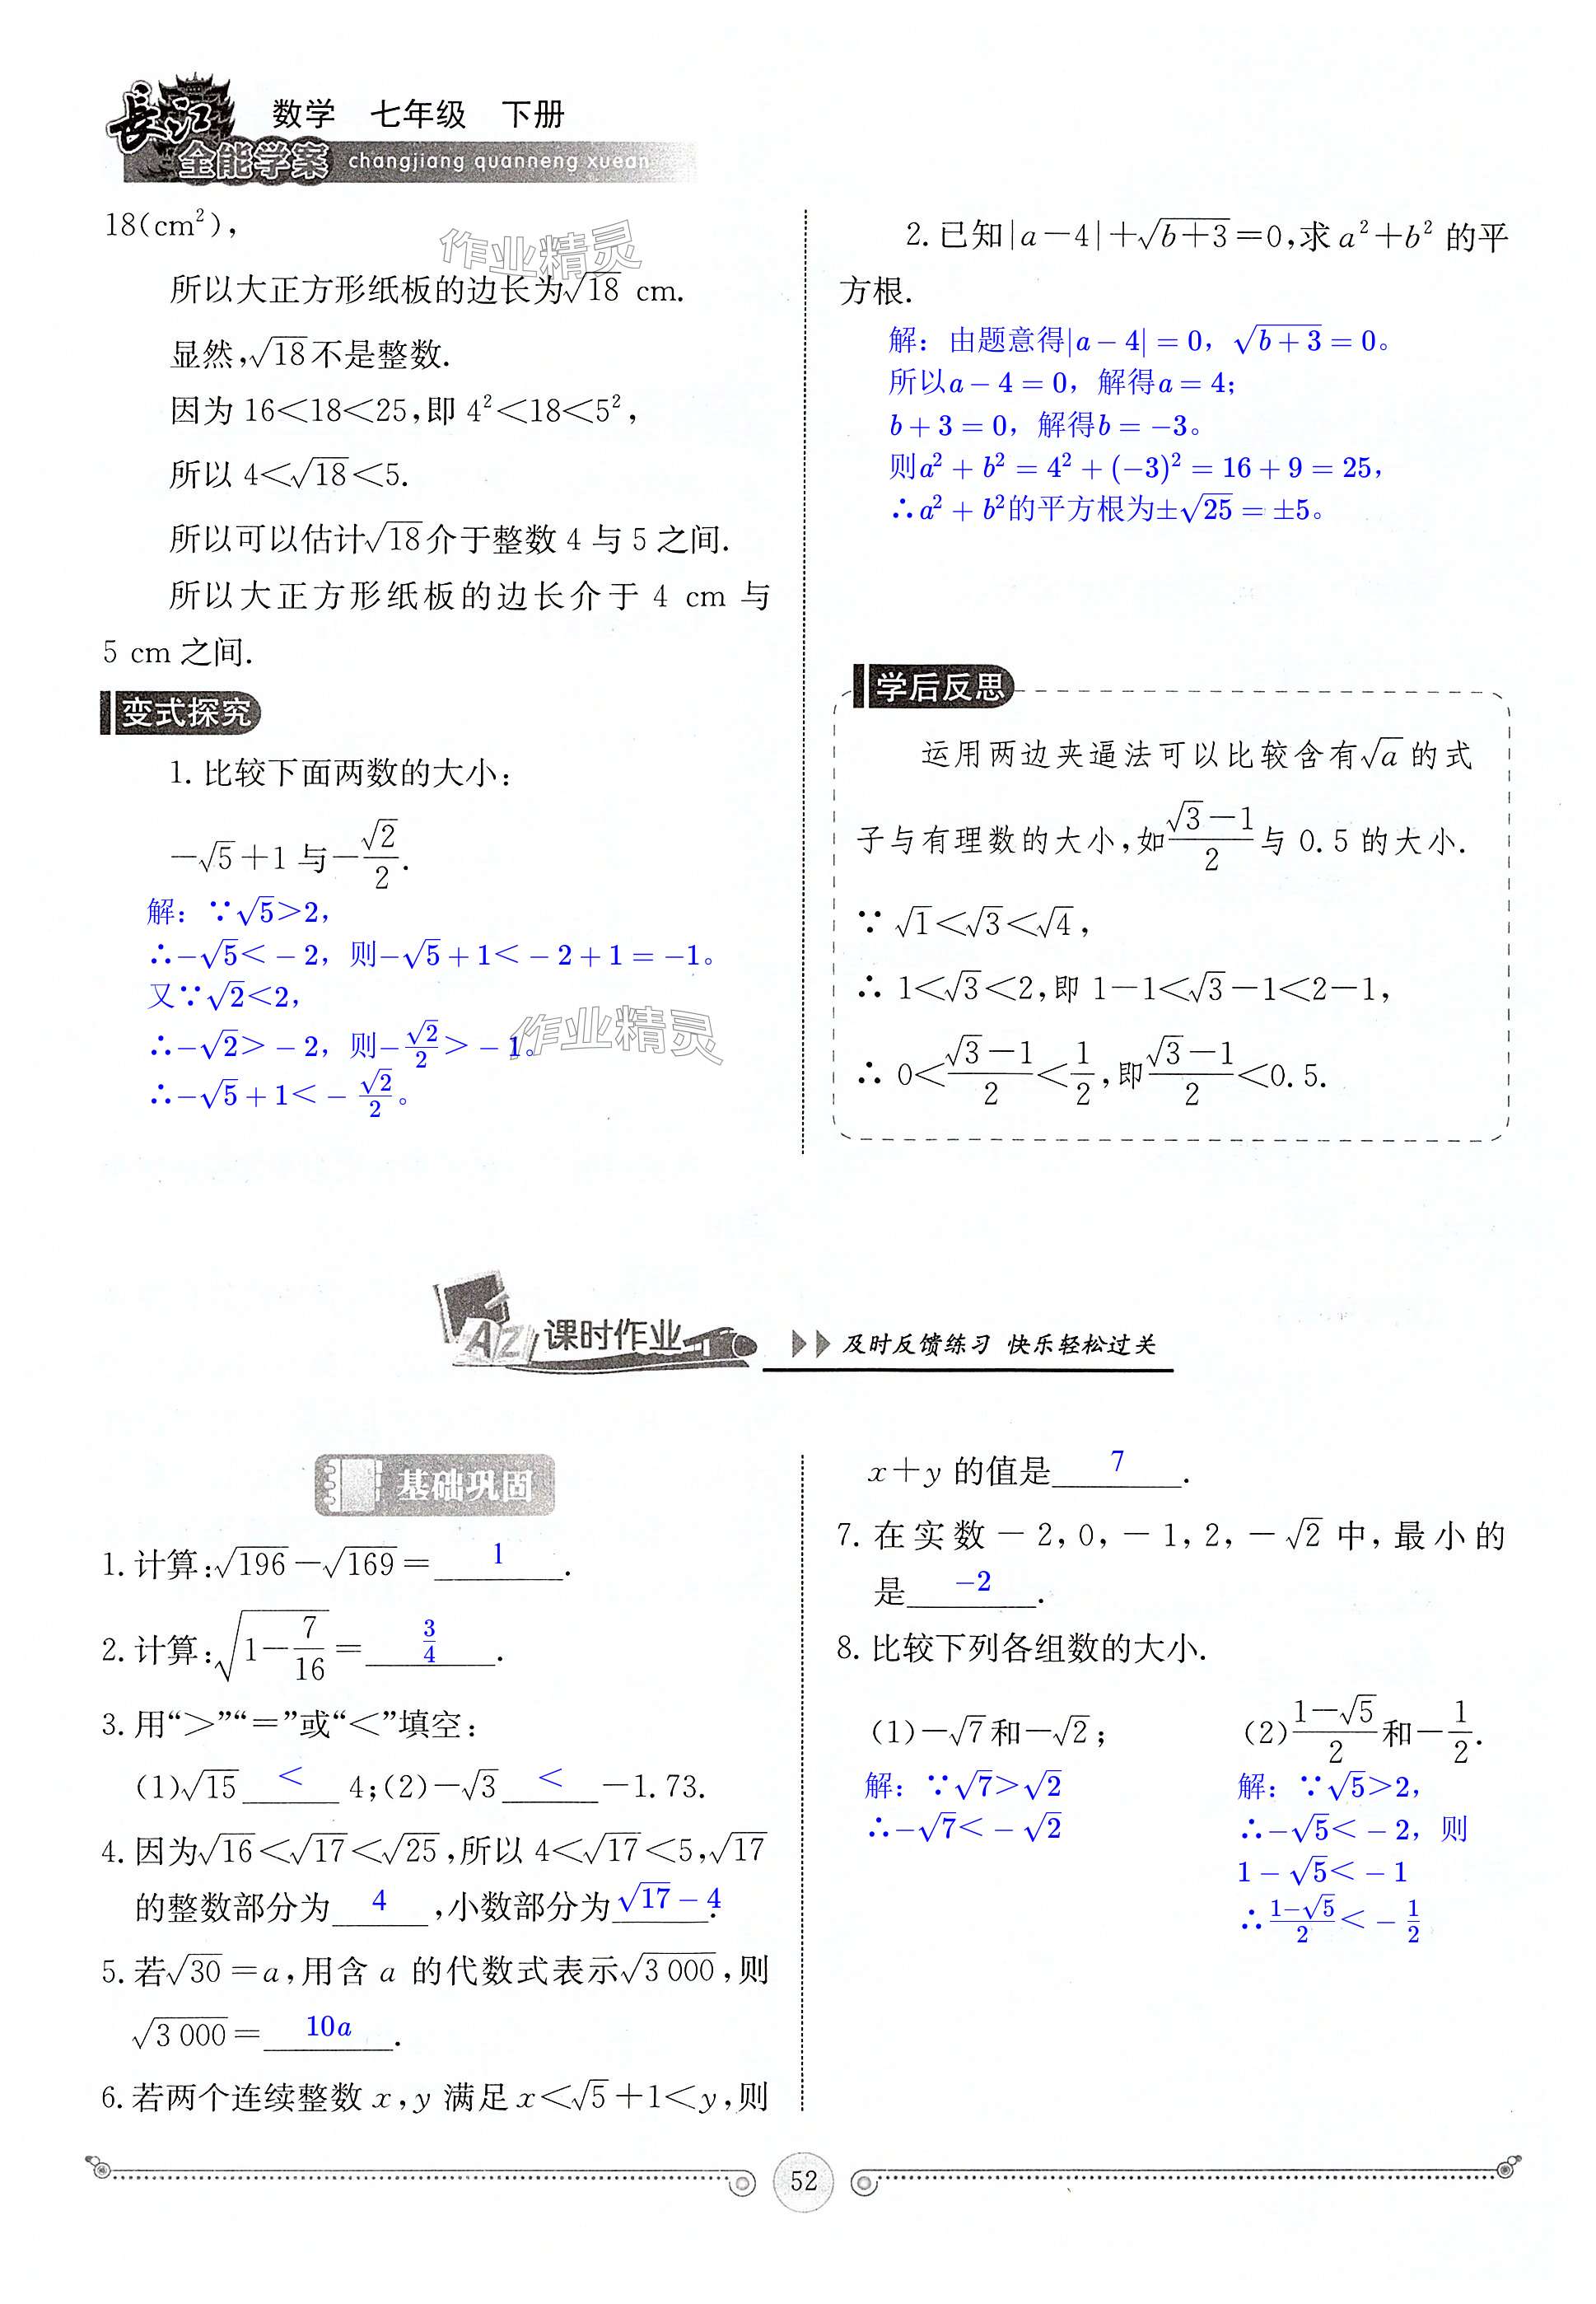 長江 数学 七年级 下册
全能学案 changjiang quanneng xuean
18(cm²),
所以大正方形纸板的边长为√18 cm.
显然,√18不是整数.
因为 16<18<25,即 4²<18<5²,
所以 4<√18<5.
所以可以估计√18介于整数 4 与 5 之间.
所以大正方形纸板的边长介于 4 cm 与
5 cm 之间.
变式探究
1. 比较下面两数的大小:
-√5+1 与-√2/2.
解：∵√5>2，
∴-√5<-2，则-√5+1<-2+1=-1。
又∵√2<2，
∴-√2>-2，则-√2/2>-1。
∴-√5+1<-√2/2。
作业精灵
作业精灵
2. 已知|a-4|+√(b+3)=0,求 a²+b² 的平
方根.
解：由题意得|a-4|=0，√(b+3)=0。
所以a-4=0，解得a=4；
b+3=0，解得b=-3。
则a²+b²=4²+(-3)²=16+9=25，
∴a²+b²的平方根为±√25=±5。
学后反思
运用两边夹逼法可以比较含有√a的式
子与有理数的大小,如(√3-1)/2与 0.5 的大小.
∵ √1<√3<√4,
∴ 1<√3<2,即 1-1<√3-1<2-1,
∴ 0<(√3-1)/2<1/2,即(√3-1)/2<0.5.
AZ 课时作业 及时反馈练习 快乐轻松过关
基础巩固
1. 计算:√196-√169=____1____.
2. 计算:√(1-7/16)=____3/4____.
3. 用“>”“=”或“<”填空:
(1)√15__<__4;(2)-√3__<__-1.73.
4. 因为√16<√17<√25,所以 4<√17<5,√17
的整数部分为__4__,小数部分为__√17-4__.
5. 若√30=a,用含 a 的代数式表示√3 000,则
√3 000=__10a__.
6. 若两个连续整数 x,y 满足 x<√5+1<y,则
x+y 的值是__7__.
7. 在实数-2,0,-1,2,-√2中,最小的
是__-2__.
8. 比较下列各组数的大小.
(1)-√7和-√2;
解：∵√7>√2
∴-√7<-√2
(2)(1-√5)/2和-1/2.
解：∵√5>2，
∴-√5<-2，则
1-√5<-1
∴(1-√5)/2<-1/2
52